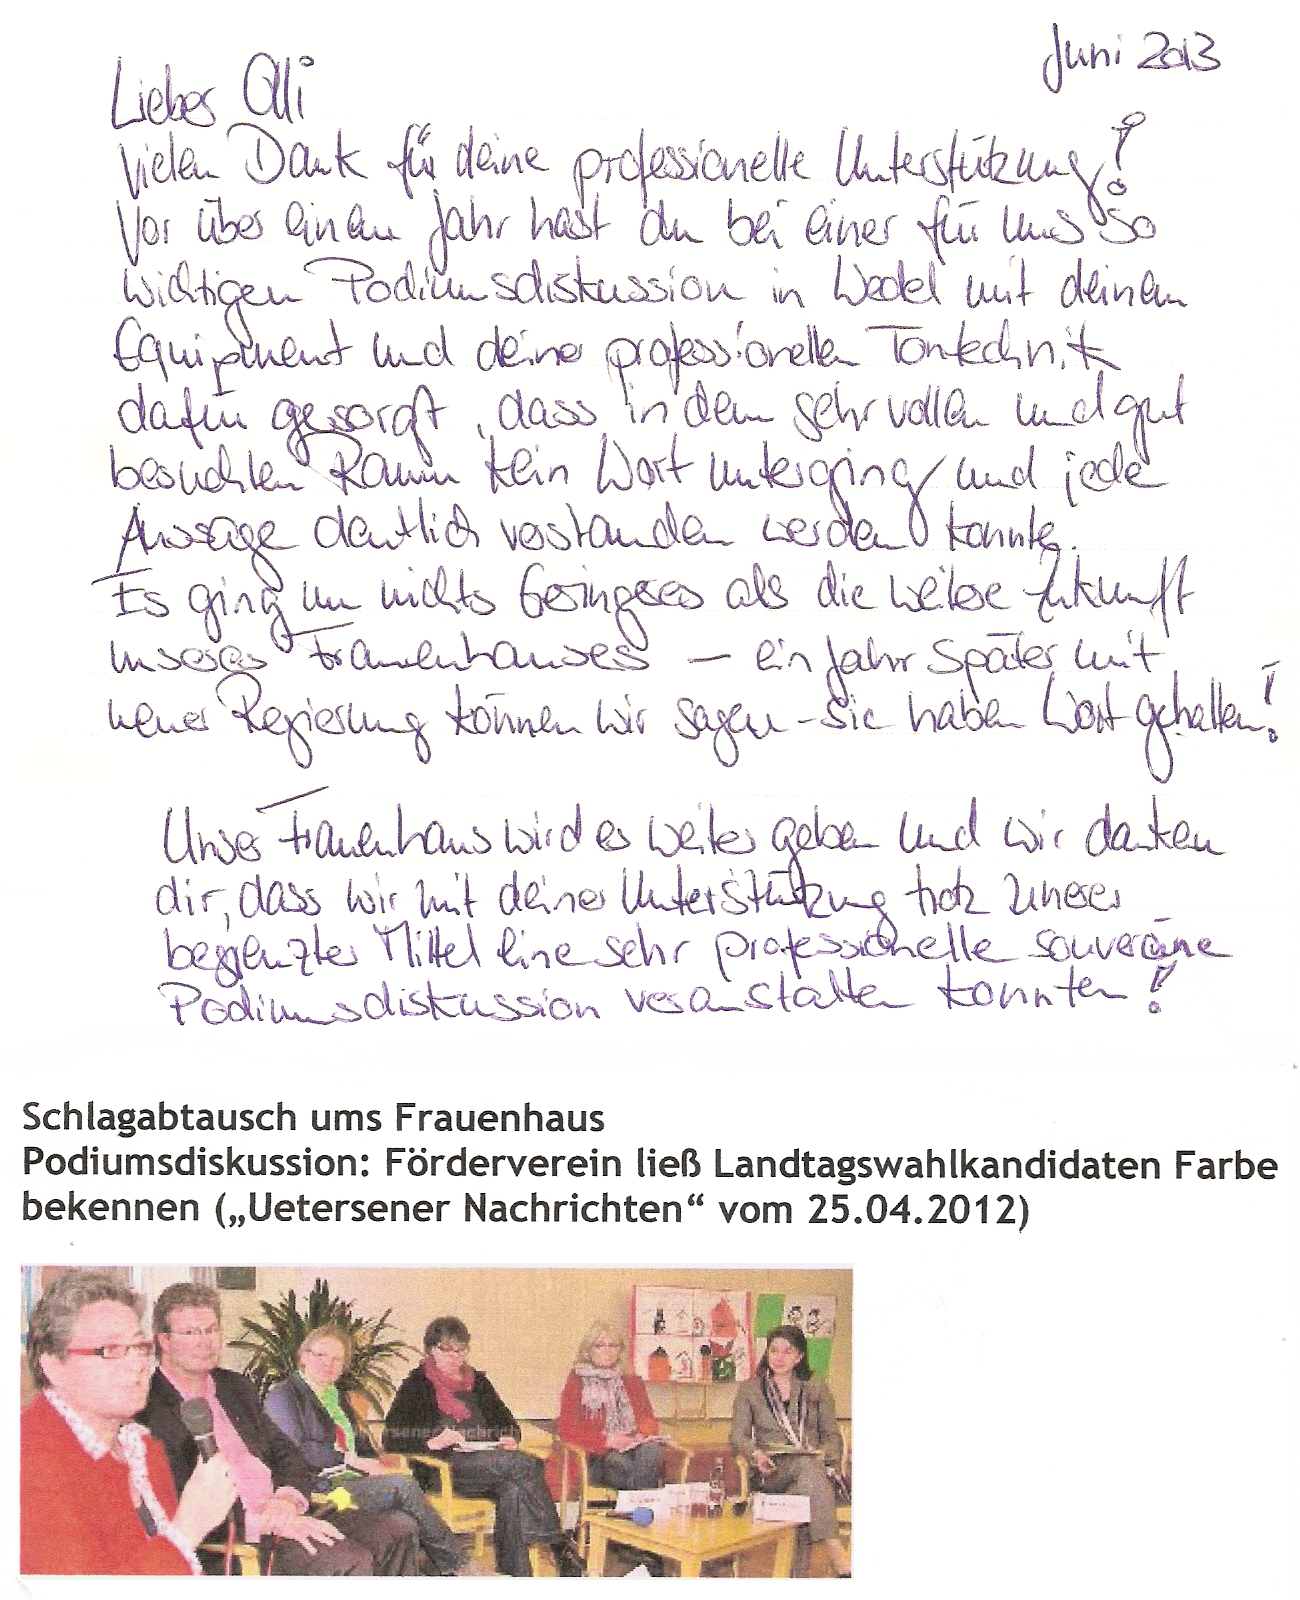 Juni 2013
Lieber Olli
Vielen Dank für deine professionelle Unterstützung!
Vor über einem Jahr hast du bei einer für uns so
wichtigen Podiumsdiskussion in Wedel mit deinem
Equipment und deiner professionellen Tontechnik
dafür gesorgt, dass in dem sehr vollen und gut
besuchten Raum kein Wort unterging und jede
Aussage deutlich verstanden werden konnte.
Es ging um nichts Geringeres als die weitere Zukunft
unseres Frauenhauses – ein Jahr später mit
neuer Regierung können wir sagen – sie haben Wort gehalten!
Unser Frauenhaus wird es weiter geben und wir danken
dir, dass wir mit deiner Unterstützung trotz unserer
begrenzter Mittel eine sehr professionelle souveräne
Podiumsdiskussion veranstalten konnten!
Schlagabtausch ums Frauenhaus
Podiumsdiskussion: Förderverein ließ Landtagswahlkandidaten Farbe
bekennen („Uetersener Nachrichten“ vom 25.04.2012)